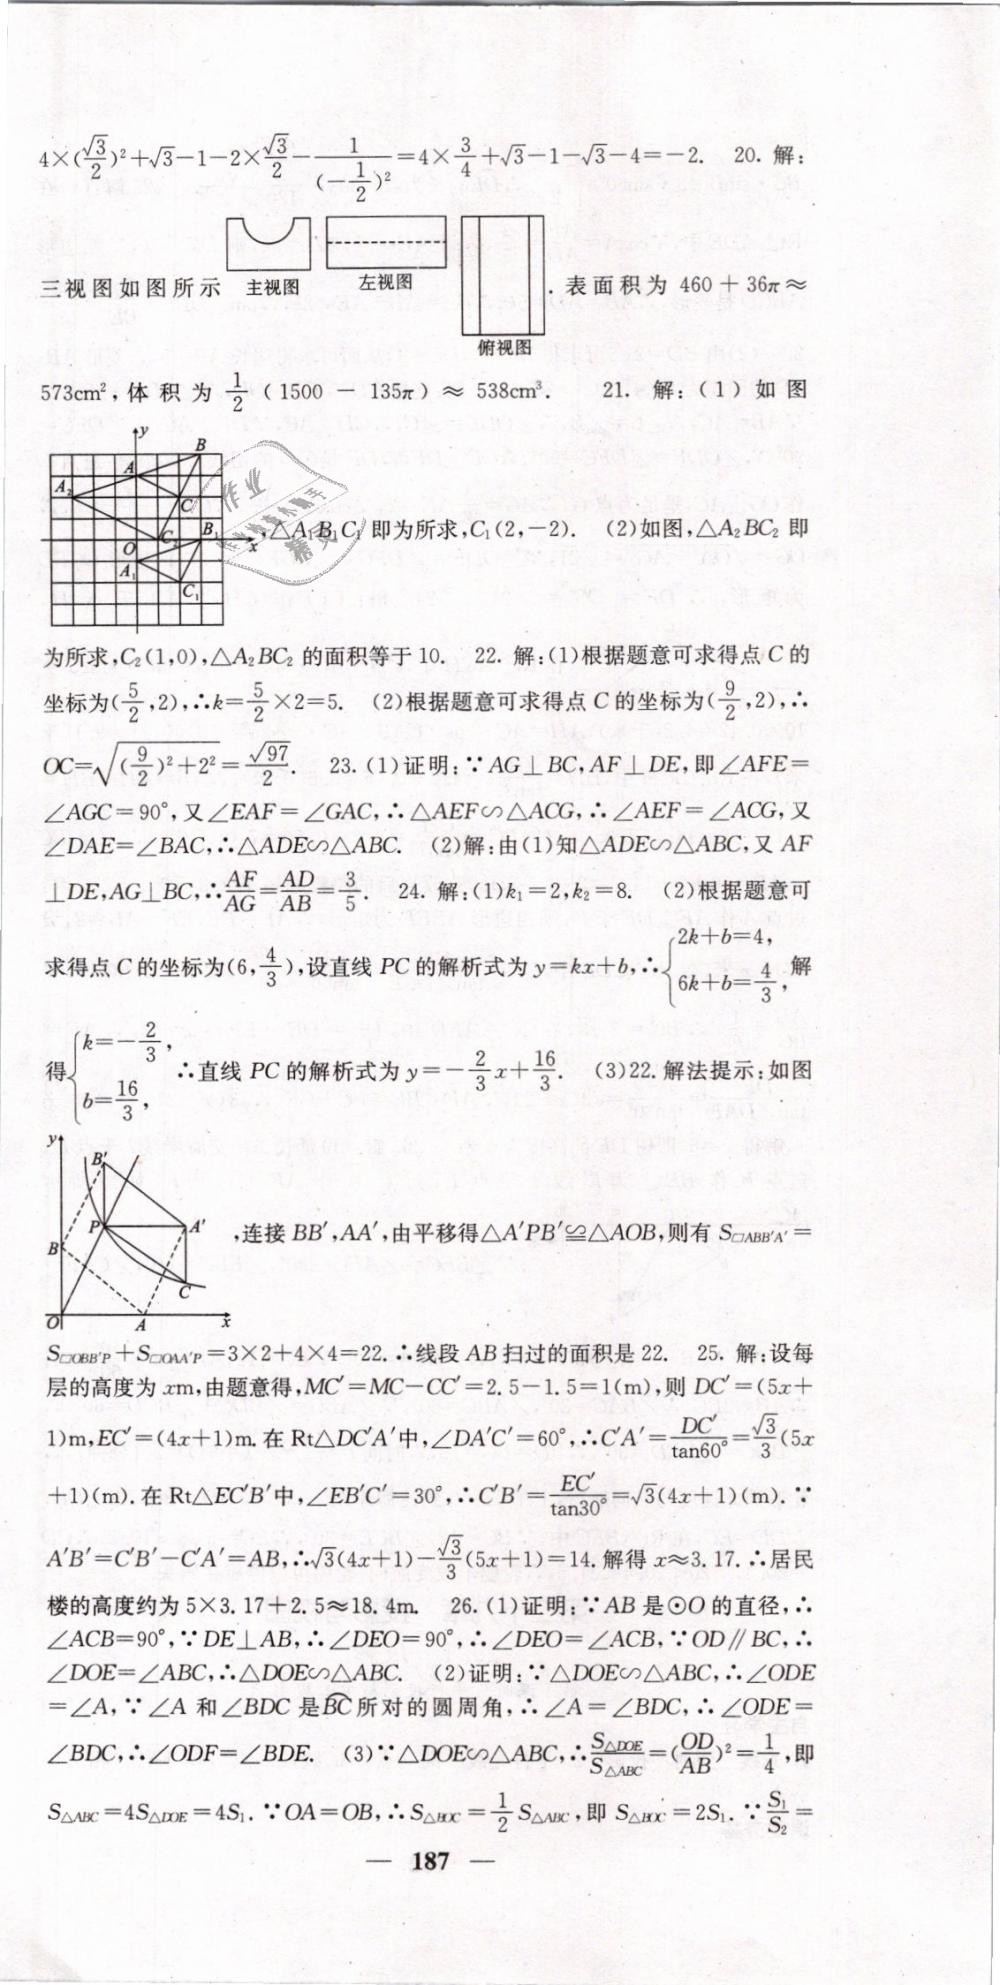 4×(√3/2)²+√3−1−2×√3/2−1/(−1/2)²=4×3/4+√3−1−√3−4=−2. 20. 解:
三视图如图所示 主视图 左视图 俯视图 . 表面积为 460+36π≈
573cm², 体积为 1/2 (1500 − 135π) ≈ 538cm³. 21. 解: (1) 如图
y A B A₂ C O C₂ B₁ x A₁ C₁ ,△A₁B₁C₁ 即为所求,C₁(2,−2). (2)如图,△A₂BC₂ 即
为所求,C₂(1,0),△A₂BC₂ 的面积等于 10. 22. 解:(1)根据题意可求得点 C 的
坐标为(5/2,2),∴k=5/2×2=5. (2)根据题意可求得点 C 的坐标为(9/2,2),∴
OC=√((9/2)²+2²)=√97/2. 23. (1)证明:∵AG⊥BC,AF⊥DE,即∠AFE=
∠AGC=90°,又∠EAF=∠GAC,∴△AEF∽△ACG,∴∠AEF=∠ACG,又
∠DAE=∠BAC,∴△ADE∽△ABC. (2)解:由(1)知△ADE∽△ABC,又 AF
⊥DE,AG⊥BC,∴AF/AG=AD/AB=3/5. 24. 解:(1)k₁=2,k₂=8. (2)根据题意可
求得点 C 的坐标为(6,4/3),设直线 PC 的解析式为 y=kx+b,∴{2k+b=4, 6k+b=4/3, 解
得{k=−2/3, b=16/3, ∴直线 PC 的解析式为 y=−2/3x+16/3. (3)22. 解法提示:如图
y B′ P A′ B C O A x ,连接 BB′,AA′,由平移得△A′PB′≌△AOB,则有 S▱ABB′A′=
S▱OBB′P+S▱OAA′P=3×2+4×4=22. ∴线段 AB 扫过的面积是 22. 25. 解:设每
层的高度为 xm,由题意得,MC′=MC−CC′=2.5−1.5=1(m),则 DC′=(5x+
1)m,EC′=(4x+1)m. 在 Rt△DC′A′中,∠DA′C′=60°,∴C′A′=DC′/tan60°=√3/3(5x
+1)(m). 在 Rt△EC′B′中,∠EB′C′=30°,∴C′B′=EC′/tan30°=√3(4x+1)(m). ∵
A′B′=C′B′−C′A′=AB,∴√3(4x+1)−√3/3(5x+1)=14. 解得 x≈3.17. ∴居民
楼的高度约为 5×3.17+2.5≈18.4m. 26. (1)证明:∵AB 是⊙O 的直径,∴
∠ACB=90°,∵DE⊥AB,∴∠DEO=90°,∴∠DEO=∠ACB,∵OD∥BC,∴
∠DOE=∠ABC,∴△DOE∽△ABC. (2)证明:∵△DOE∽△ABC,∴∠ODE
=∠A,∵∠A 和∠BDC 是B͡C所对的圆周角,∴∠A=∠BDC,∴∠ODE=
∠BDC,∴∠ODF=∠BDE. (3)∵△DOE∽△ABC,∴S△DOE/S△ABC=(OD/AB)²=1/4,即
S△ABC=4S△DOE=4S₁. ∵OA=OB,∴S△BOC=1/2S△ABC,即 S△BOC=2S₁. ∵S₁/S₂=
— 187 —